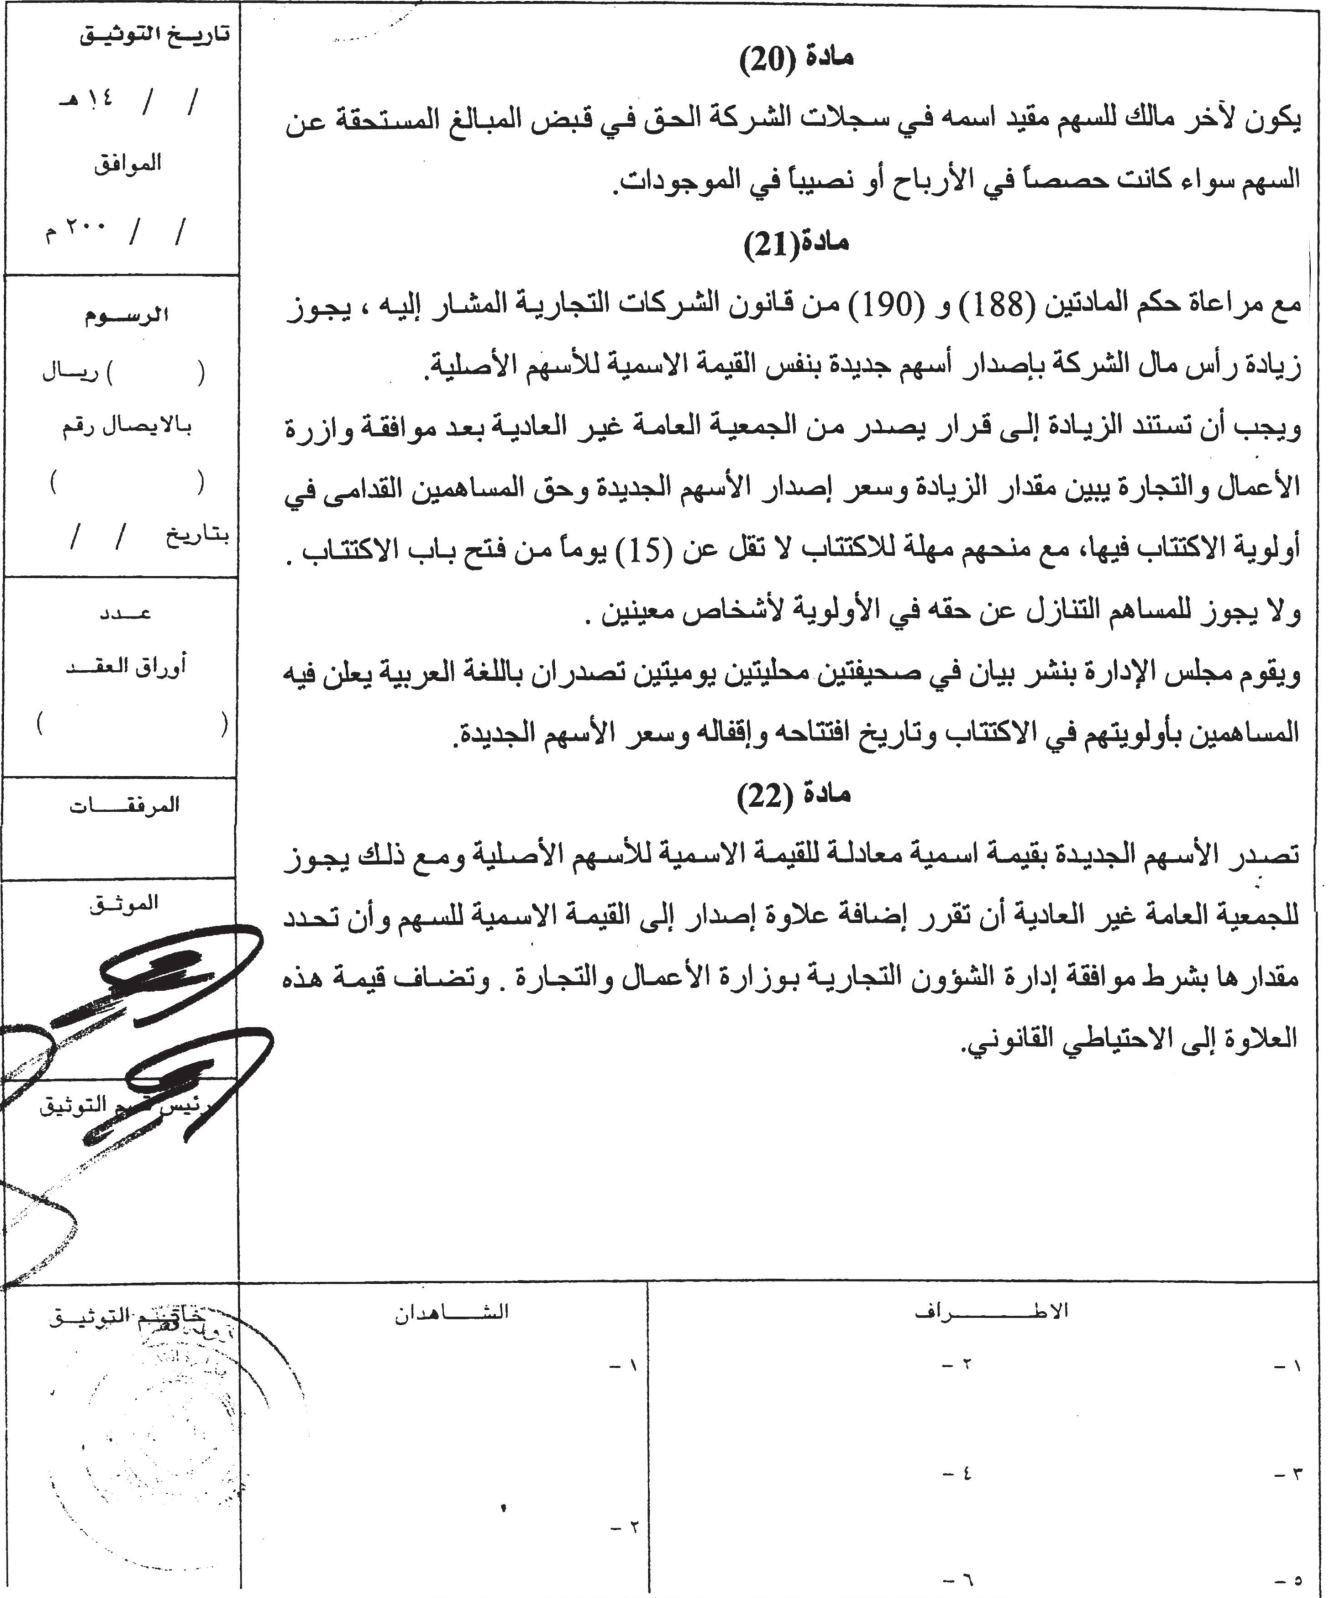 مادة (20)
يكون لآخر مالك للسهم مقيد اسمه في سجلات الشركة الحق في قبض المبالغ المستحقة عن
السهم سواء كانت حصصاً في الأرباح أو نصيباً في الموجودات.
مادة(21)
مع مراعاة حكم المادتين (188) و (190) من قانون الشركات التجارية المشار إليه ، يجوز
زيادة رأس مال الشركة بإصدار أسهم جديدة بنفس القيمة الاسمية للأسهم الأصلية.
ويجب أن تستند الزيادة إلى قرار يصدر من الجمعية العامة غير العادية بعد موافقة وازرة
الأعمال والتجارة يبين مقدار الزيادة وسعر إصدار الأسهم الجديدة وحق المساهمين القدامى في
أولوية الاكتتاب فيها، مع منحهم مهلة للاكتتاب لا تقل عن (15) يوماً من فتح باب الاكتتاب .
ولا يجوز للمساهم التنازل عن حقه في الأولوية لأشخاص معينين .
ويقوم مجلس الإدارة بنشر بيان في صحيفتين محليتين يوميتين تصدران باللغة العربية يعلن فيه
المساهمين بأولويتهم في الاكتتاب وتاريخ افتتاحه وإقفاله وسعر الأسهم الجديدة.
مادة (22)
تصدر الأسهم الجديدة بقيمة اسمية معادلة للقيمة الاسمية للأسهم الأصلية ومع ذلك يجوز
للجمعية العامة غير العادية أن تقرر إضافة علاوة إصدار إلى القيمة الاسمية للسهم وأن تحدد
مقدارها بشرط موافقة إدارة الشؤون التجارية بوزارة الأعمال والتجارة . وتضاف قيمة هذه
العلاوة إلى الاحتياطي القانوني.
تاريخ التوثيق
/ / ١٤ هـ
الموافق
/ / ٢٠٠ م
الرسوم
( ) ريال
بالايصال رقم
( )
بتاريخ / /
عدد
أوراق العقد
( )
المرفقات
الموثق
رئيس قسم التوثيق
الاطراف
١ -
٢ -
٣ -
٤ -
٥ -
٦ -
الشاهدان
١ -
٢ -
خاتم التوثيق